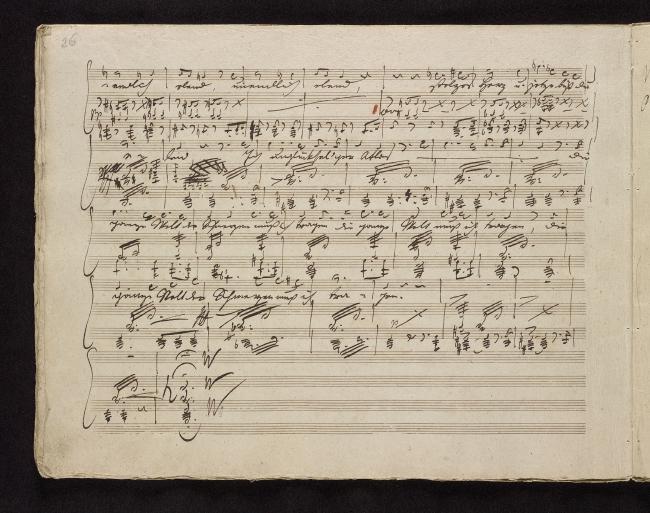 26
-endlich elend, unendlich elend, stolzes Herz u: jetzo bist du
e - lend Ich unglücksel'ger Atlas die
ganze Welt der Schmerzen muß ich tragen die ganze Welt muß ich tragen, die
ganze Welt der Schmerzen muß ich tra - gen.